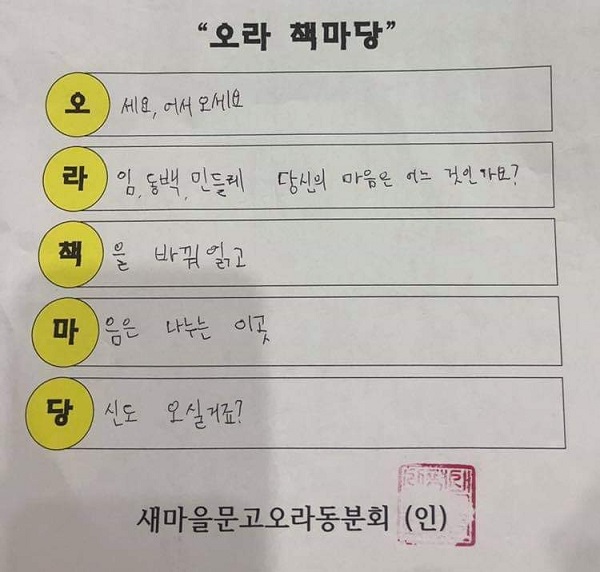 “오라 책마당”
오 세요, 어서 오세요
라 임, 동백, 민들레 당신의 마음은 어느 것인가요?
책 을 바꿔 읽고
마 음은 나누는 이곳
당 신도 오실거죠?
새마을문고오라동분회 (인)